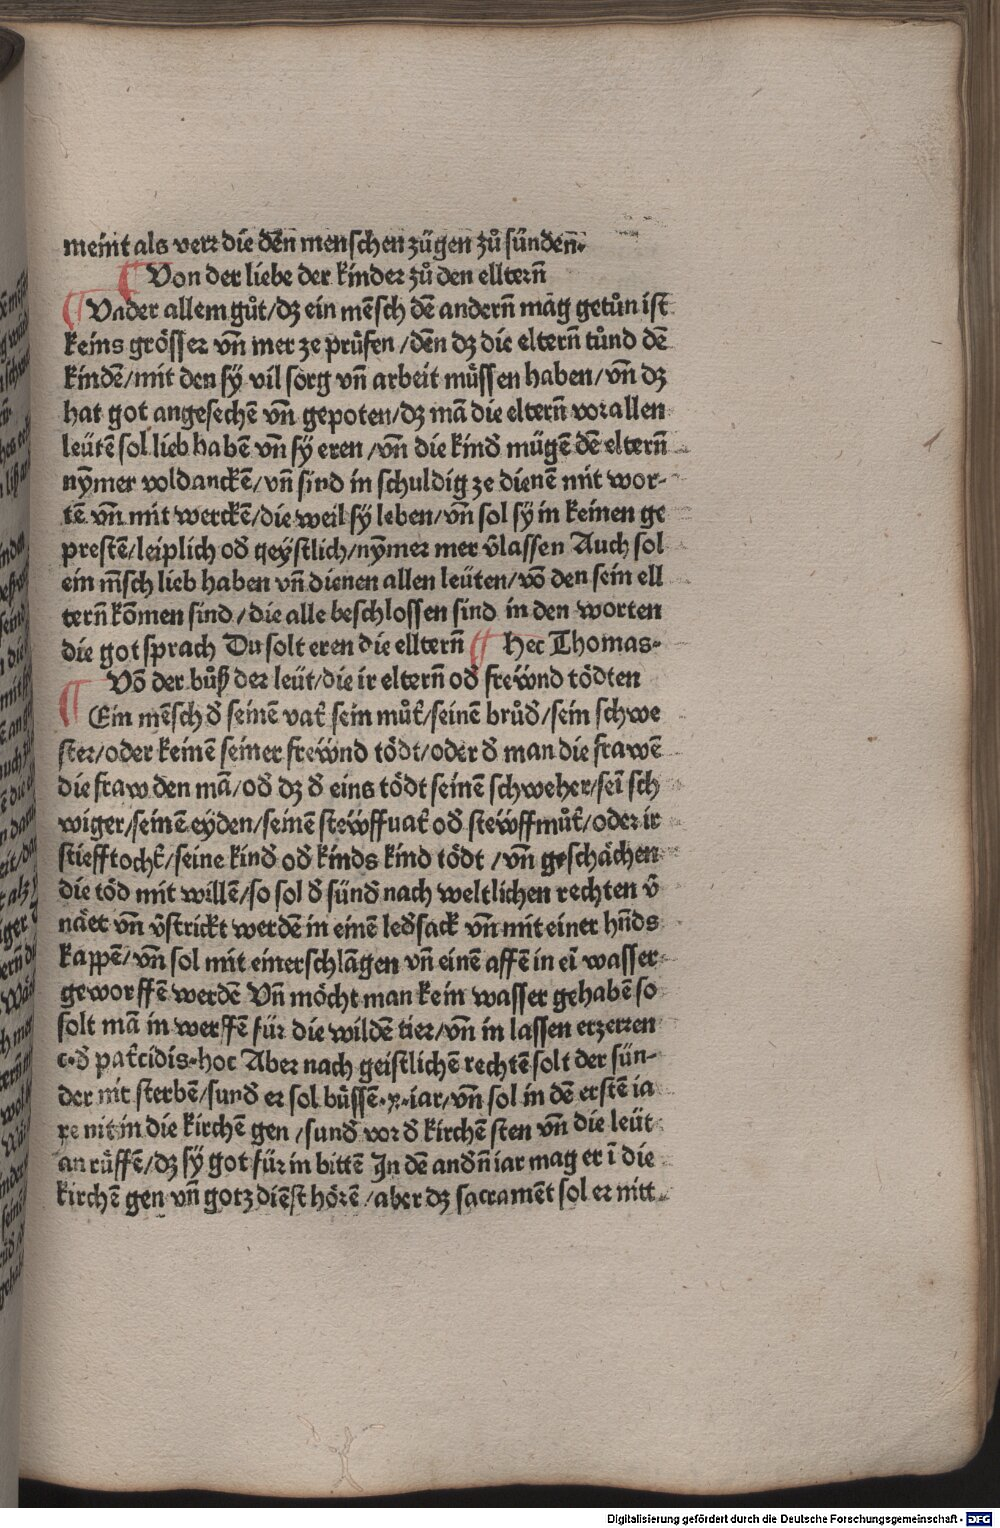 meint als verr die dēn menschen zügen zů sünden̄.
¶ Von der liebe der kinder zů den elltern̄
¶ Vnder allem gůt/dz ein mēsch dē andern̄ mag getůn ist
keins grösser vn̄ mer ze prüfen/dēn dz die eltern̄ tůnd dē
kindē/mit den sÿ vil sorg vn̄ arbeit müssen haben/vn̄ dz
hat got angesechē vn̄ gepoten/dz mā die eltern̄ vor allen
leütē sol lieb habē vn̄ sÿ eren/vn̄ die kind mügē dē eltern̄
nȳmer voldanckē/vn̄ sind in schuldig ze dienē mit wor-
tē vn̄ mit werckē/die weil sÿ leben/vn̄ sol sÿ in keinen ge
prestē/leiplich od̄ geÿstlich/nȳmer mer v̄lassen Auch sol
ein m̄sch lieb haben vn̄ dienen allen leüten/vō den sein ell
tern̄ kōmen sind/die alle beschlossen sind in den worten
die got sprach Du solt eren die elltern̄ ¶ Hec Thomas.
Vō der bůß der leüt/die ir eltern̄ od̄ freẅnd tödten
¶ Ein mēsch d̄ seinē vat̄ sein můt̄/seinē brůd̄/sein schwe
ster/oder keinē seiner freẅnd tödt/oder d̄ man die frawē
die fraw den mā/od̄ dz d̄ eins tödt seinē schweher/seī sch
wiger/seinē eÿden/seinē steẅffuat̄ od̄ steẅffmůt̄/oder ir
stiefftocht̄/seine kind̄ od̄ kinds kind tödt/vn̄ geschächen
die töd mit willē/so sol d̄ sünd̄ nach weltlichen rechten v̄
näet vn̄ v̄strickt werdē in einē led̄sack vn̄ mit einer hn̄ds
kappē/vn̄ sol mit einer schlāgen vn̄ einē affē in eī wasser
geworffē werdē Vn̄ möcht man kein wasser gehabē so
solt mā in werffē für die wildē tier/vn̄ in lassen erzerren
c.d̄ pat̄cidis.hoc Aber nach geistlichē rechtē solt der sün-
der nit sterbē/sund̄ er sol büssē.x.iar/vn̄ sol in dē erstē ia
re nit in die kirchē gen/sund̄ vor d̄ kirchē sten vn̄ die leüt
an rüffē/dz sÿ got für in bittē In dē and̄n̄ iar mag er ī die
kirchē gen vn̄ gotz diēst hörē/aber dz sacramēt sol er nitt
Digitalisierung gefördert durch die Deutsche Forschungsgemeinschaft - DFG